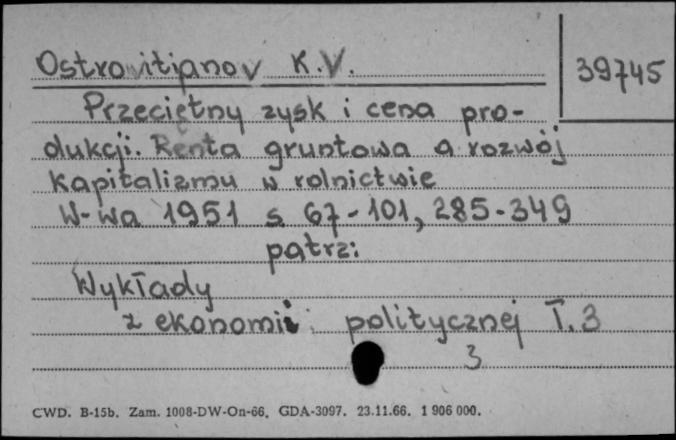 Ostrovitjanov K.V.
39745
Przeciętny zysk i cena pro-
dukcji. Renta gruntowa a rozwój
kapitalizmu w rolnictwie
W-wa 1951 s. 67-101, 285-349
patrz:
Wykłady
z ekonomii politycznej T. 3
3
CWD. B-15b. Zam. 1008-DW-On-66. GDA-3097. 23.11.66. 1 906 000.